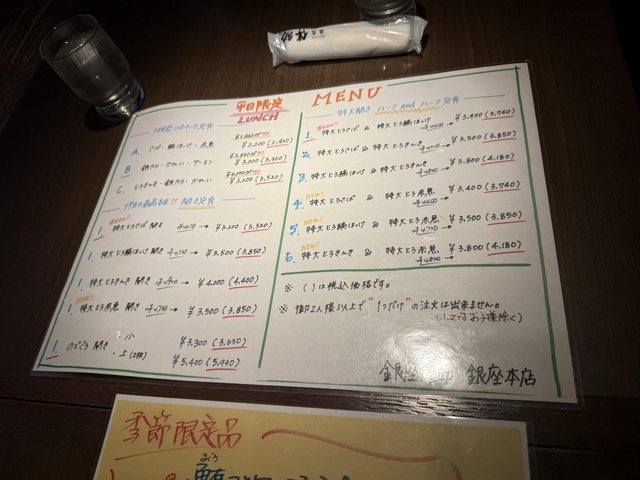 平日限定
LUNCH
3種盛り合わせ定食
A. さば・縞ほっけ・赤魚 ¥2,200 (2,420)
B 銀だら・かれい・サーモン ¥3,000 (3,300)
C. とろきんき・銀だら・かれい ¥3,200 (3,520)
開き定食
1. 特大とろさば 開き → ¥3,200 (3,520)
1. 特大とろ縞ほっけ 開き → ¥3,500 (3,850)
1. 特大とろきんき 開き → ¥4,000 (4,400)
NEW!!
1. 特大とろ赤魚 開き → ¥3,500 (3,850)
1. のどぐろ 開き ・小 ¥3,300 (3,630)
・上 ¥5,400 (5,940)
MENU
特大開き ハーフ and ハーフ定食
1. 特大とろさば & 特大とろ縞ほっけ → ¥3,400 (3,740)
2. 特大とろさば & 特大とろきんき → ¥3,500 (3,850)
3. 特大とろ縞ほっけ & 特大とろきんき → ¥3,800 (4,180)
NEW!!
4. 特大とろさば & 特大とろ赤魚 → ¥3,400 (3,740)
NEW!!
5. 特大とろ縞ほっけ & 特大とろ赤魚 → ¥3,500 (3,850)
NEW!!
6. 特大とろきんき & 特大とろ赤魚 → ¥3,800 (4,180)
※ ( )は税込価格です。
※ 御2人様以上で "1つだけ" の注文は出来ません。
お子様除く)
銀座 銀座本店
季節限定品